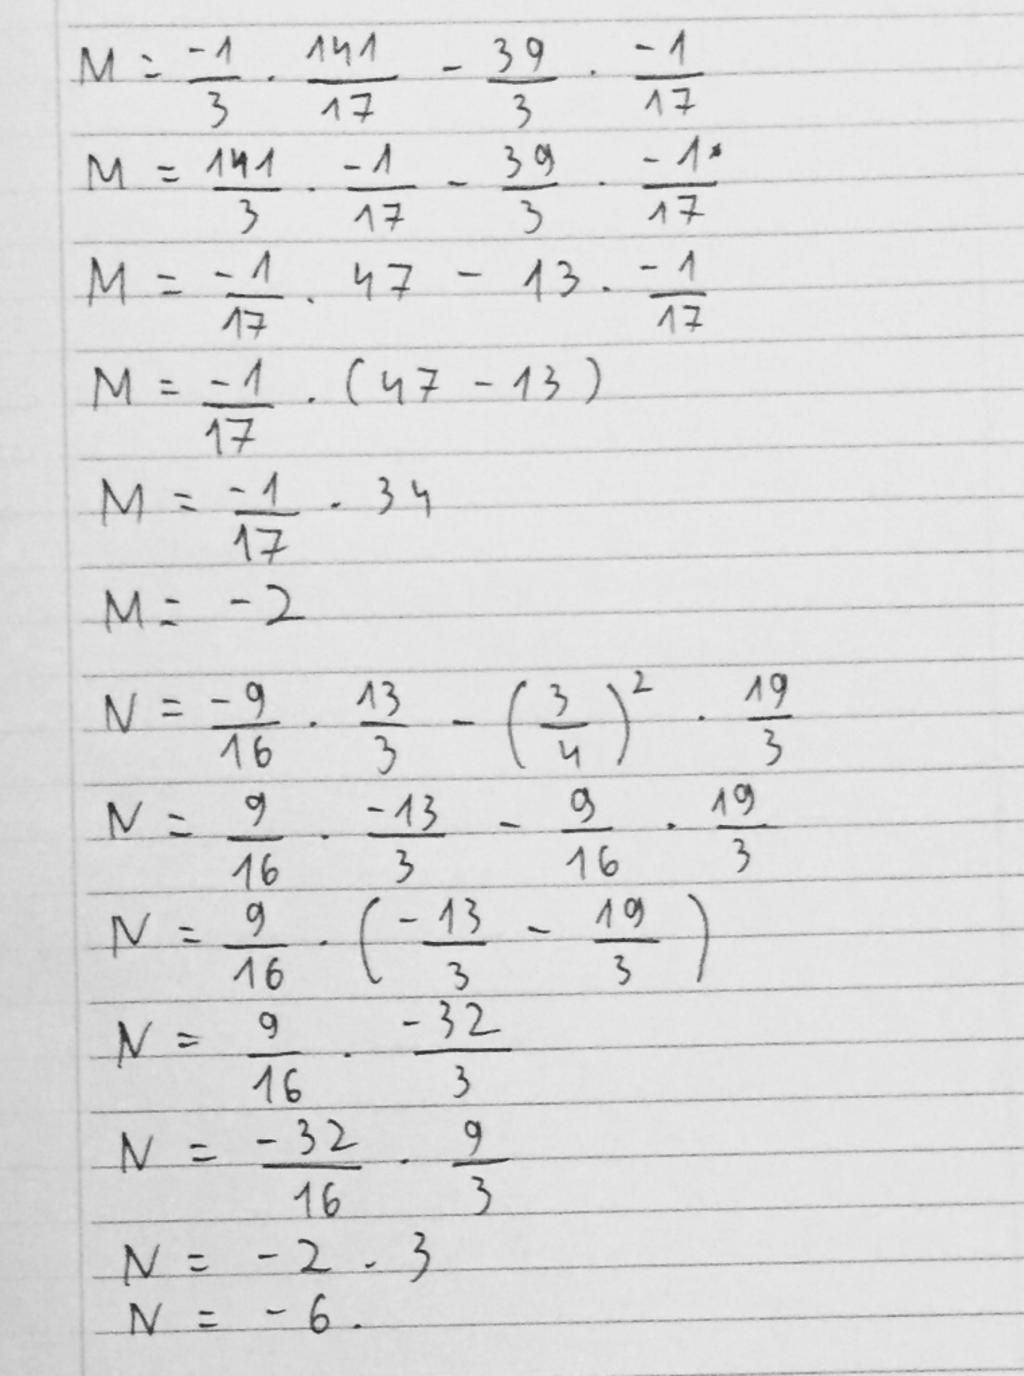 M = -1/3 . 141/17 - 39/3 . -1/17
M = 141/3 . -1/17 - 39/3 . -1/17
M = -1/17 . 47 - 13 . -1/17
M = -1/17 . (47 - 13)
M = -1/17 . 34
M = -2
N = -9/16 . 13/3 - (3/4)² . 19/3
N = 9/16 . -13/3 - 9/16 . 19/3
N = 9/16 . (-13/3 - 19/3)
N = 9/16 . -32/3
N = -32/16 . 9/3
N = -2 . 3
N = -6.